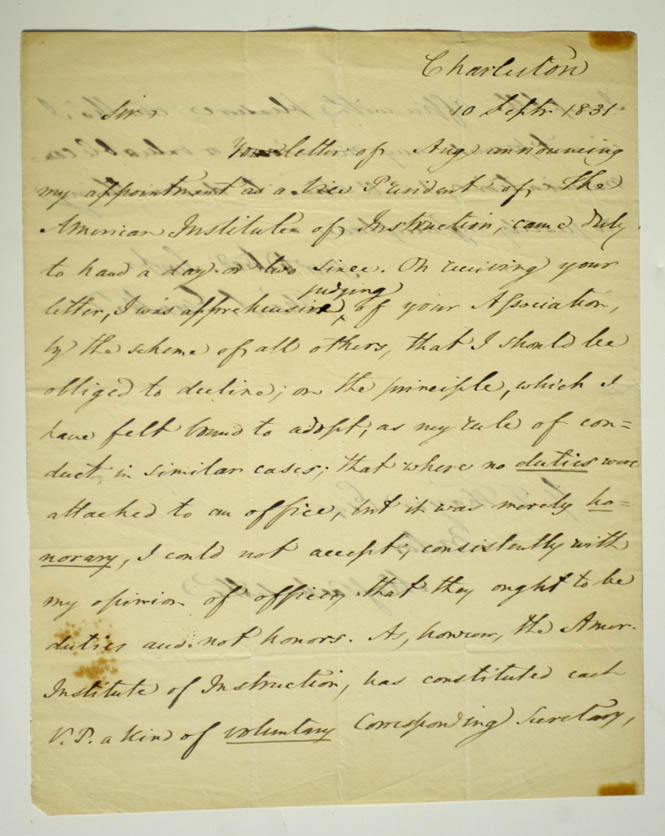 Charleston
Sir 10 Septr. 1831
Your letter of Aug announcing
my appointment as a Vice President of the
American Institute of Instruction, came duly
to hand a day or two since. On receiving your
judging
letter, I was apprehensive, of your Association,
by the scheme of all others, that I should be
obliged to decline; on the principle, which I
have felt bound to adopt, as my rule of con=
duct, in similar cases; that where no duties were
attached to an office, but it was merely ho=
norary, I could not accept, consistently with
my opinion of offices, that they ought to be
duties and not honors. As, however, the Amer.
Institute of Instruction, has constituted each
V.P. a kind of voluntary Corresponding Secretary,